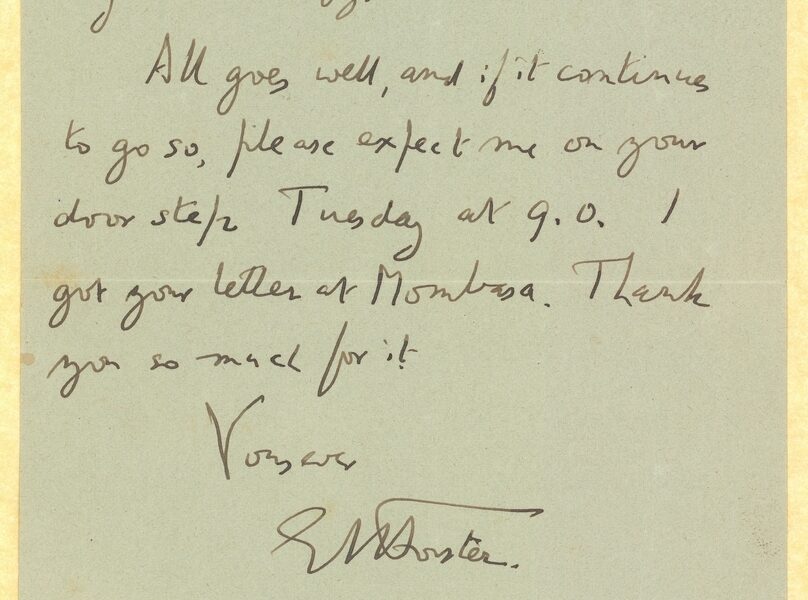 All goes well, and if it continues
to go so, please expect me on your
door step Tuesday at 9.0. I
got your letter at Mombasa. Thank
you so much for it
Yours ever
EMForster.